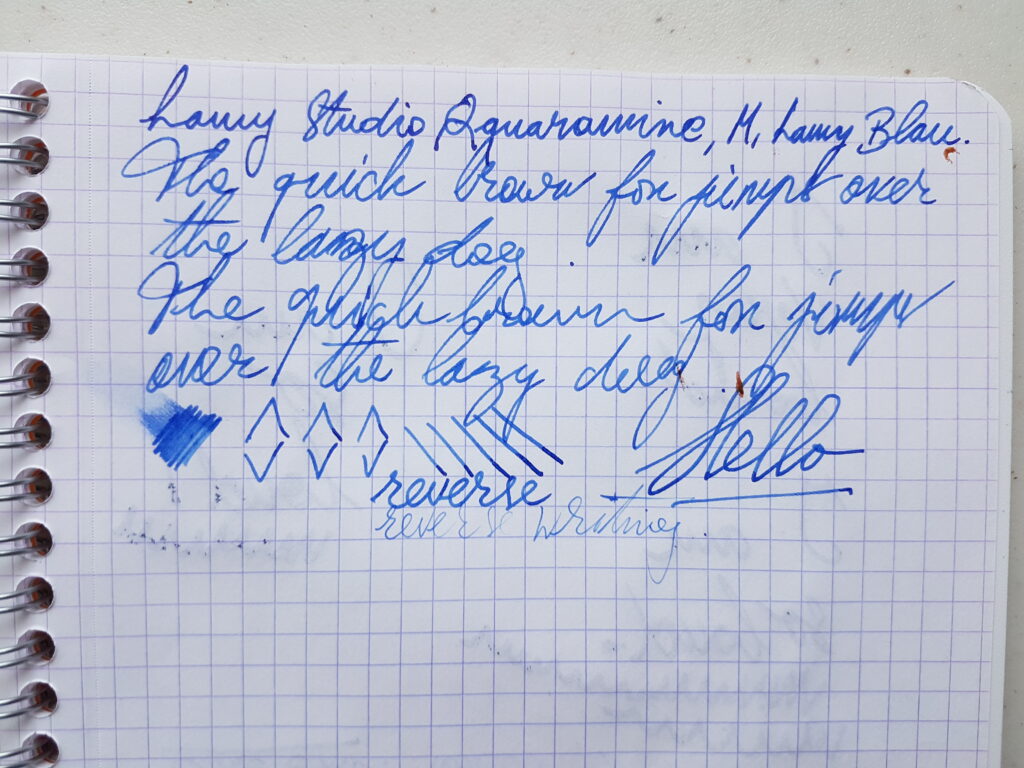 Lamy Studio Aquaramine, M, Lamy Blau.
The quick brown fox jimps over
the lazy dog.
The quick brown fox jimps
over the lazy dog.
Hello
reverse
reverse writing